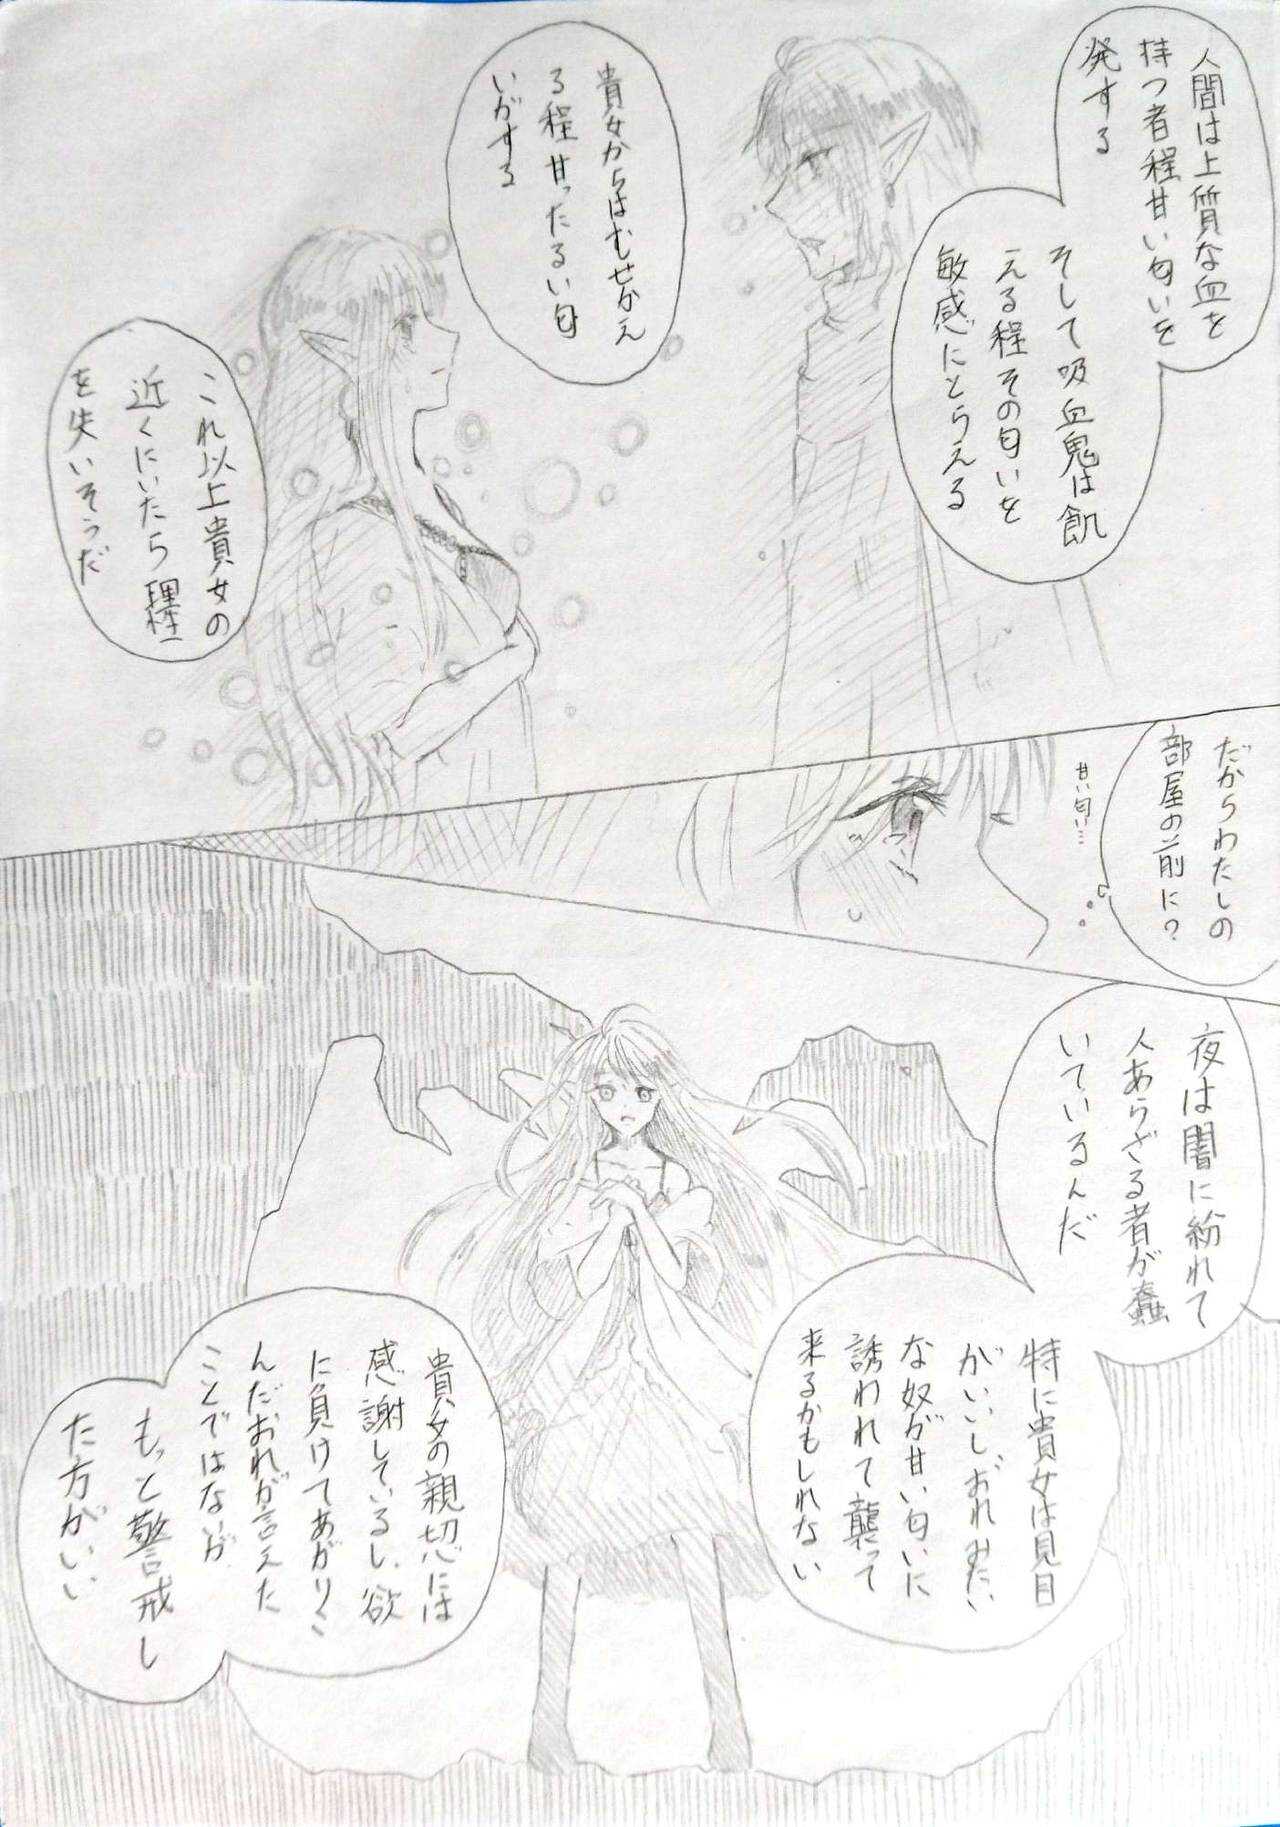 人間は上質な血を
持つ者程甘い匂いを
発する
そして吸血鬼は飢
える程その匂いを
敏感にとらえる
貴女からはむせかえ
る程甘ったるい匂
いがする
これ以上貴女の
近くにいたら理性
を失いそうだ
だからわたしの
部屋の前に?
甘い匂い…
夜は闇に紛れて
人あらざる者が蠢
いているんだ
特に貴女は見目
がいいしおれみたい
な奴が甘い匂いに
誘われて襲って
来るかもしれない
貴女の親切には
感謝しているし、欲
に負けてあがりこ
んだおれが言えた
ことではないが
もっと警戒し
た方がいい